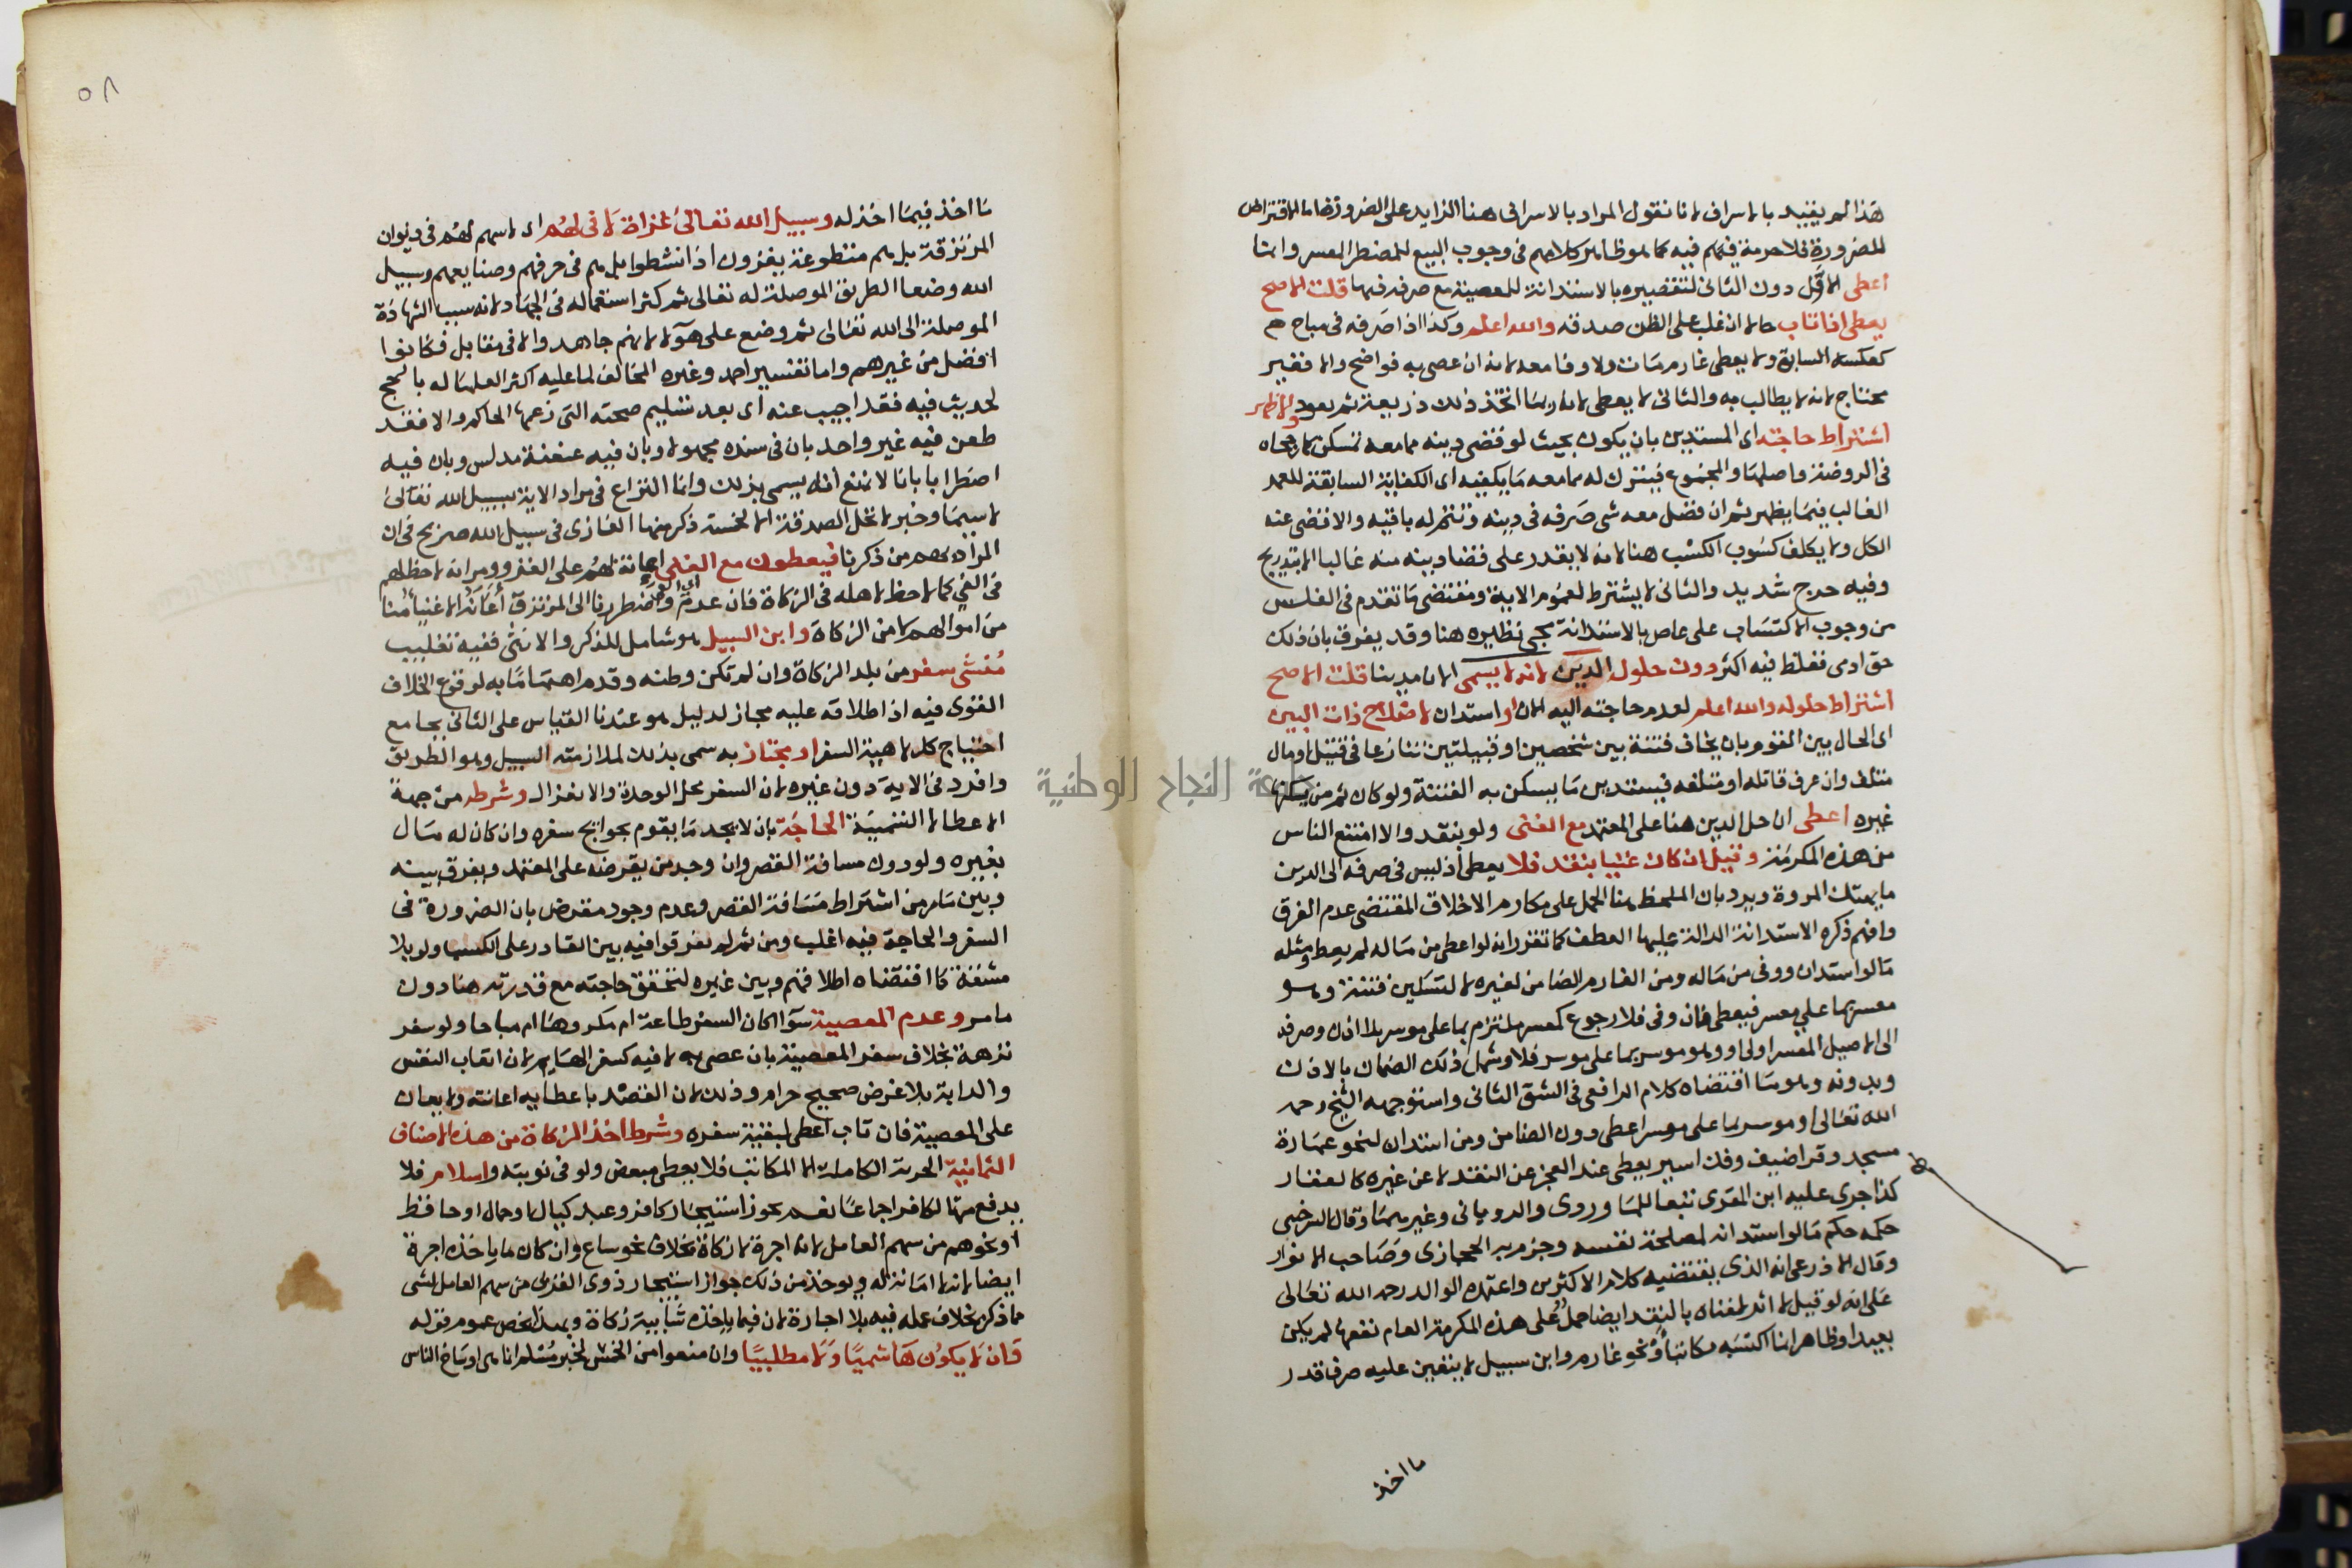 هذا لم يقيد بالاسراف لانا نقول المراد بالاسراف هنا الزايد على الضرورة اما الاقتراض
للضرورة فلا حرمة فيهم فيه كما هو ظاهر كلامهم في وجوب البيع للمضطر المعسر وانما
اعطى الاول دون الثاني لتقصيره بالاستدانة للمعصية مع صرفه فيها قلت الاصح
يعطى اذا تاب حالا ان غلب على الظن صدقه والله اعلم وكذا اذا صرفه في مباح
كعكسه السابق ولا يعطى غارم مات ولا وفا معه لانه ان عصى به فواضح والا فغير
محتاج لانه لا يطالب به والثاني لا يعطى لانه ربما اتخذ ذلك ذريعة ثم يعود والاظهر
اشتراط حاجته اى المستدين بان يكون بحيث لو قضى دينه مما معه تمسكن كما رجحاه
في الروضة واصلها والمجموع فيترك له مما معه ما يكفيه اى الكفاية السابقة للعمر
الغالب فيما يظهر ثم ان فضل معه شى صرفه في دينه وتمم له باقيه والا قضى عنه
الكل ولا يكلف كسوب الكسب هنا لانه لا يقدر على قضا دينه منه غالبا الا بتدريج
وفيه حرج شديد والثاني لا يشترط لعموم الاية ومقتضى ما تقدم في الفلس
من وجوب الاكتساب على عاص بالاستدانة مجى نظيره هنا وقد يفرق بان ذلك
حق ادمى فغلظ فيه اكثر دون حلول الدين لانه لا يسمى الان مدينا قلت الاصح
اشتراط حلوله والله اعلم لعدم حاجته اليه الان او استدان لاصلاح ذات البين
اى الحال بين القوم بان يخاف فتنة بين شخصين او قبيلتين تنازعا في قتيل او مال
متلف وان عرف قاتله او متلفه فيستدين ما يسكن به الفتنة ولو كان ثم من يسكنها
غيره اعطى ان حل الدين هنا على المعتمد مع الغنى ولو بنقد والا امتنع الناس
من هذه المكرمة وقيل ان كان غنيا بنقد فلا يعطى اذ ليس في صرفه الى الدين
ما يهتك المروة ويرد بان الملحظ هنا الحمل على مكارم الاخلاق المقتضى عدم الفرق
وافهم ذكره الاستدانة الدالة عليها العطف كما تقرر انه لو اعطى من ماله لم يعط ومثله
ما لو استدان ووفى من ماله ومن الغارم الضامن لغيره لا لتسكين فتنة وهو
معسر بما على معسر فيعطى فان وفى فلا رجوع كمعسر ملتزم بما على موسر بلا اذن وصرفه
الى الاصيل المعسر اولى او وهو موسر بما على موسر فلا وشمل ذلك الضمان بالاذن
وبدونه وهو ما اقتضاه كلام الرافعى في الشق الثاني واستوجهه الشيخ رحمه
الله تعالى او موسر بما على معسر اعطى دون الضامن ومن استدان لنحو عمارة
مسجد وقرا ضيف وفك اسير يعطى عند العجز عن النقد لا عن غيره كالعقار
كذا جرى عليه ابن المقرى تبعا للماوروى والرويانى وغيرهما وقال السرخسى
حكمه حكم ما لو استدانه لمصلحة نفسه وجزم به الحجازى وصاحب الانوار
وقال الاذرعى انه الذى يقتضيه كلام الاكثرين واعتمده الوالد رحمه الله تعالى
على انه لو قيل لا اثر لغناه بالنقد ايضا حملا على هذه المكرمة العام نفعها لم يكن
بعيدا وظاهر انما اكتسبه مكاتبا ونحو غارم وابن سبيل لا يتعين عليه صرف قدر
ما اخذ
٥٨
ما اخذ فيما اخذ له وسبيل الله تعالى غزاة لا فى لهم اى لا سهم لهم في ديوان
المرتزقة بل هم متطوعة يغزون اذا نشطوا بل هم في حرفهم وصنايعهم وسبيل
الله وضعا الطريق الموصلة له تعالى ثم كثر استعماله في الجهاد لانه سبب الشهادة
الموصلة الى الله تعالى ثم وضع على هولا لانهم جاهدوا لا في مقابل فكانوا
افضل من غيرهم واما تفسير احمد وغيره المخالف لما عليه اكثر العلما له بالحج
لحديث فيه فقد اجيب عنه اى بعد تسليم صحته التى زعمها الحاكم والا فقد
طعن فيه غير واحد بان في سنده مجهولا وبان فيه عنعنة مدلس وبان فيه
اضطرابا بانا لا نمنع انه يسمى بذلك وانما النزاع في مراد الاية بسبيل الله تعالى
لا سيما وخبر لا تحل الصدقة الا لخمسة ذكر منها الغازى في سبيل الله صريح في ان
المراد بهم من ذكرنا فيعطون مع الغنى اعانة لهم على الغزو ومر انه لا حظ لهم
في الفى كما لا حظ لاهله في الزكاة فان عدم واضطررنا الى المرتزق اعانه الاغنيا منا
من اموالهم لا من الزكاة وابن السبيل هو شامل للذكر والانثى ففيه تغليب
منشى سفر من بلد الزكاة وان لم تكن وطنه وقدم اهتماما به لوقوع الخلاف
القوى فيه اذ اطلاقه عليه مجاز لدليل هو عندنا القياس على الثاني بجامع
احتياج كل لاهبة السفر او مجتاز به سمى بذلك لملازمته السبيل وهو الطريق
وافرد في الاية دون غيره لان السفر محل الوحدة والانعزال وشرطه من جهة
الاعطا لا التسمية الحاجة بان لا يجد ما يقوم بحوايج سفره وان كان له مال
بغيره ولو دون مسافة القصر وان وجد من يقرضه على المعتمد ويفرق بينه
وبين ما مر من اشتراط مسافة القصر وعدم وجود مقرض بان الضرورة في
السفر والحاجة فيه اغلب ومن ثم لم يفرقوا فيه بين القادر على الكسب ولو بلا
مشقة كما اقتضاه اطلاقهم وبين غيره لتحقق حاجته مع قدرته هنا دون
ما مر وعدم المعصية سوا اكان السفر طاعة ام مكروها ام مباحا ولو سفر
نزهة بخلاف سفر المعصية بان عصى به لا فيه كسفر الهايم لان اتعاب النفس
والدابة بلا غرض صحيح حرام وذلك لان القصد باعطايه اعانته ولا يعان
على المعصية فان تاب اعطى لبقية سفره وشرط اخذ الزكاة من هذه الاصناف
الثمانية الحرية الكاملة الا المكاتب فلا يعطى مبعض ولو في نوبته واسلام فلا
يدفع منها لكافر اجماعا نعم يجوز استيجار كافر وعبد كيال او حمال او حافظ
او نحوهم من سهم العامل لانه اجرة لا زكاة بخلاف نحو ساع وان كان ما ياخذه اجرة
ايضا لانه لا امانة له ويوخذ من ذلك جواز استيجار ذوى القربى من سهم العامل لشى
مما ذكر بخلاف عمله فيه بلا اجارة لان فيما ياخذه شايبة زكاة وبهذا يخص عموم قوله
فان لا يكون هاشميا ولا مطلبيا وان منعوا من الخمس لخبر مسلم انما هى اوساخ الناس